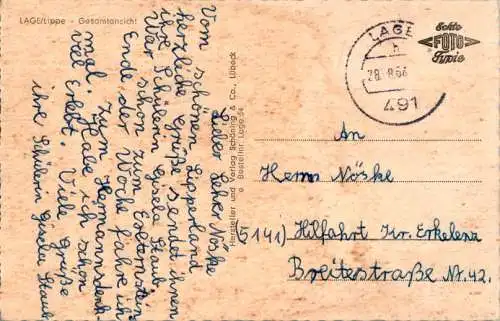 LAGE/Lippe - Gesamtansicht
Lieber Lehrer Nöske
Vom schönen Lipperland
herzliche Grüße sendet ihnen
ihre Schülerin Gisela Staub
War schon zum Externsten
Ende der Woche fahre ich
mal. zum Hermannsdenk-
Habe ich schon
viel erlebt. Viele Grüße
ihre Schülerin Gisela Staub
Hersteller und Verlag Schöning & Co., Lübeck
Bestellnr. Lage
LAGE
h
28. 8. 66
491
Echte
FOTO
Typie
An
Herrn Nöske
(5141) Hilfahrt Kr. Erkelenz
Breitestraße Nr. 42.